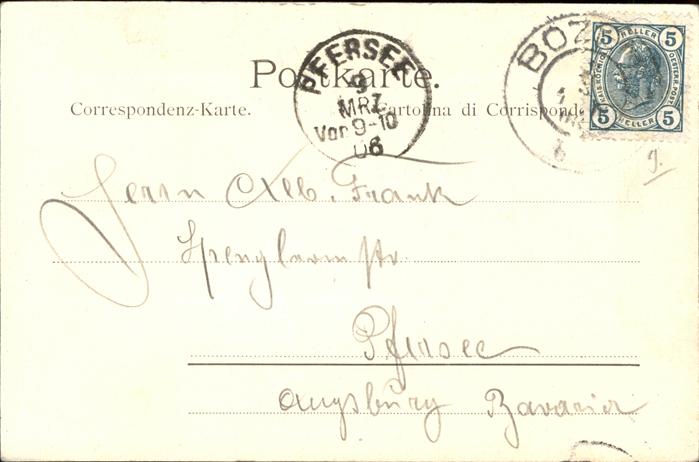 Postkarte.
Correspondenz-Karte. Cartolina di Corrispondenza
PFERSEE
9
MRZ
Vor 9-10
06
BOZ
5 HELLER 5
5 HELLER 5
Herrn Alb. Frank
Spenglermstr
Pfersee
Augsburg Bavaria